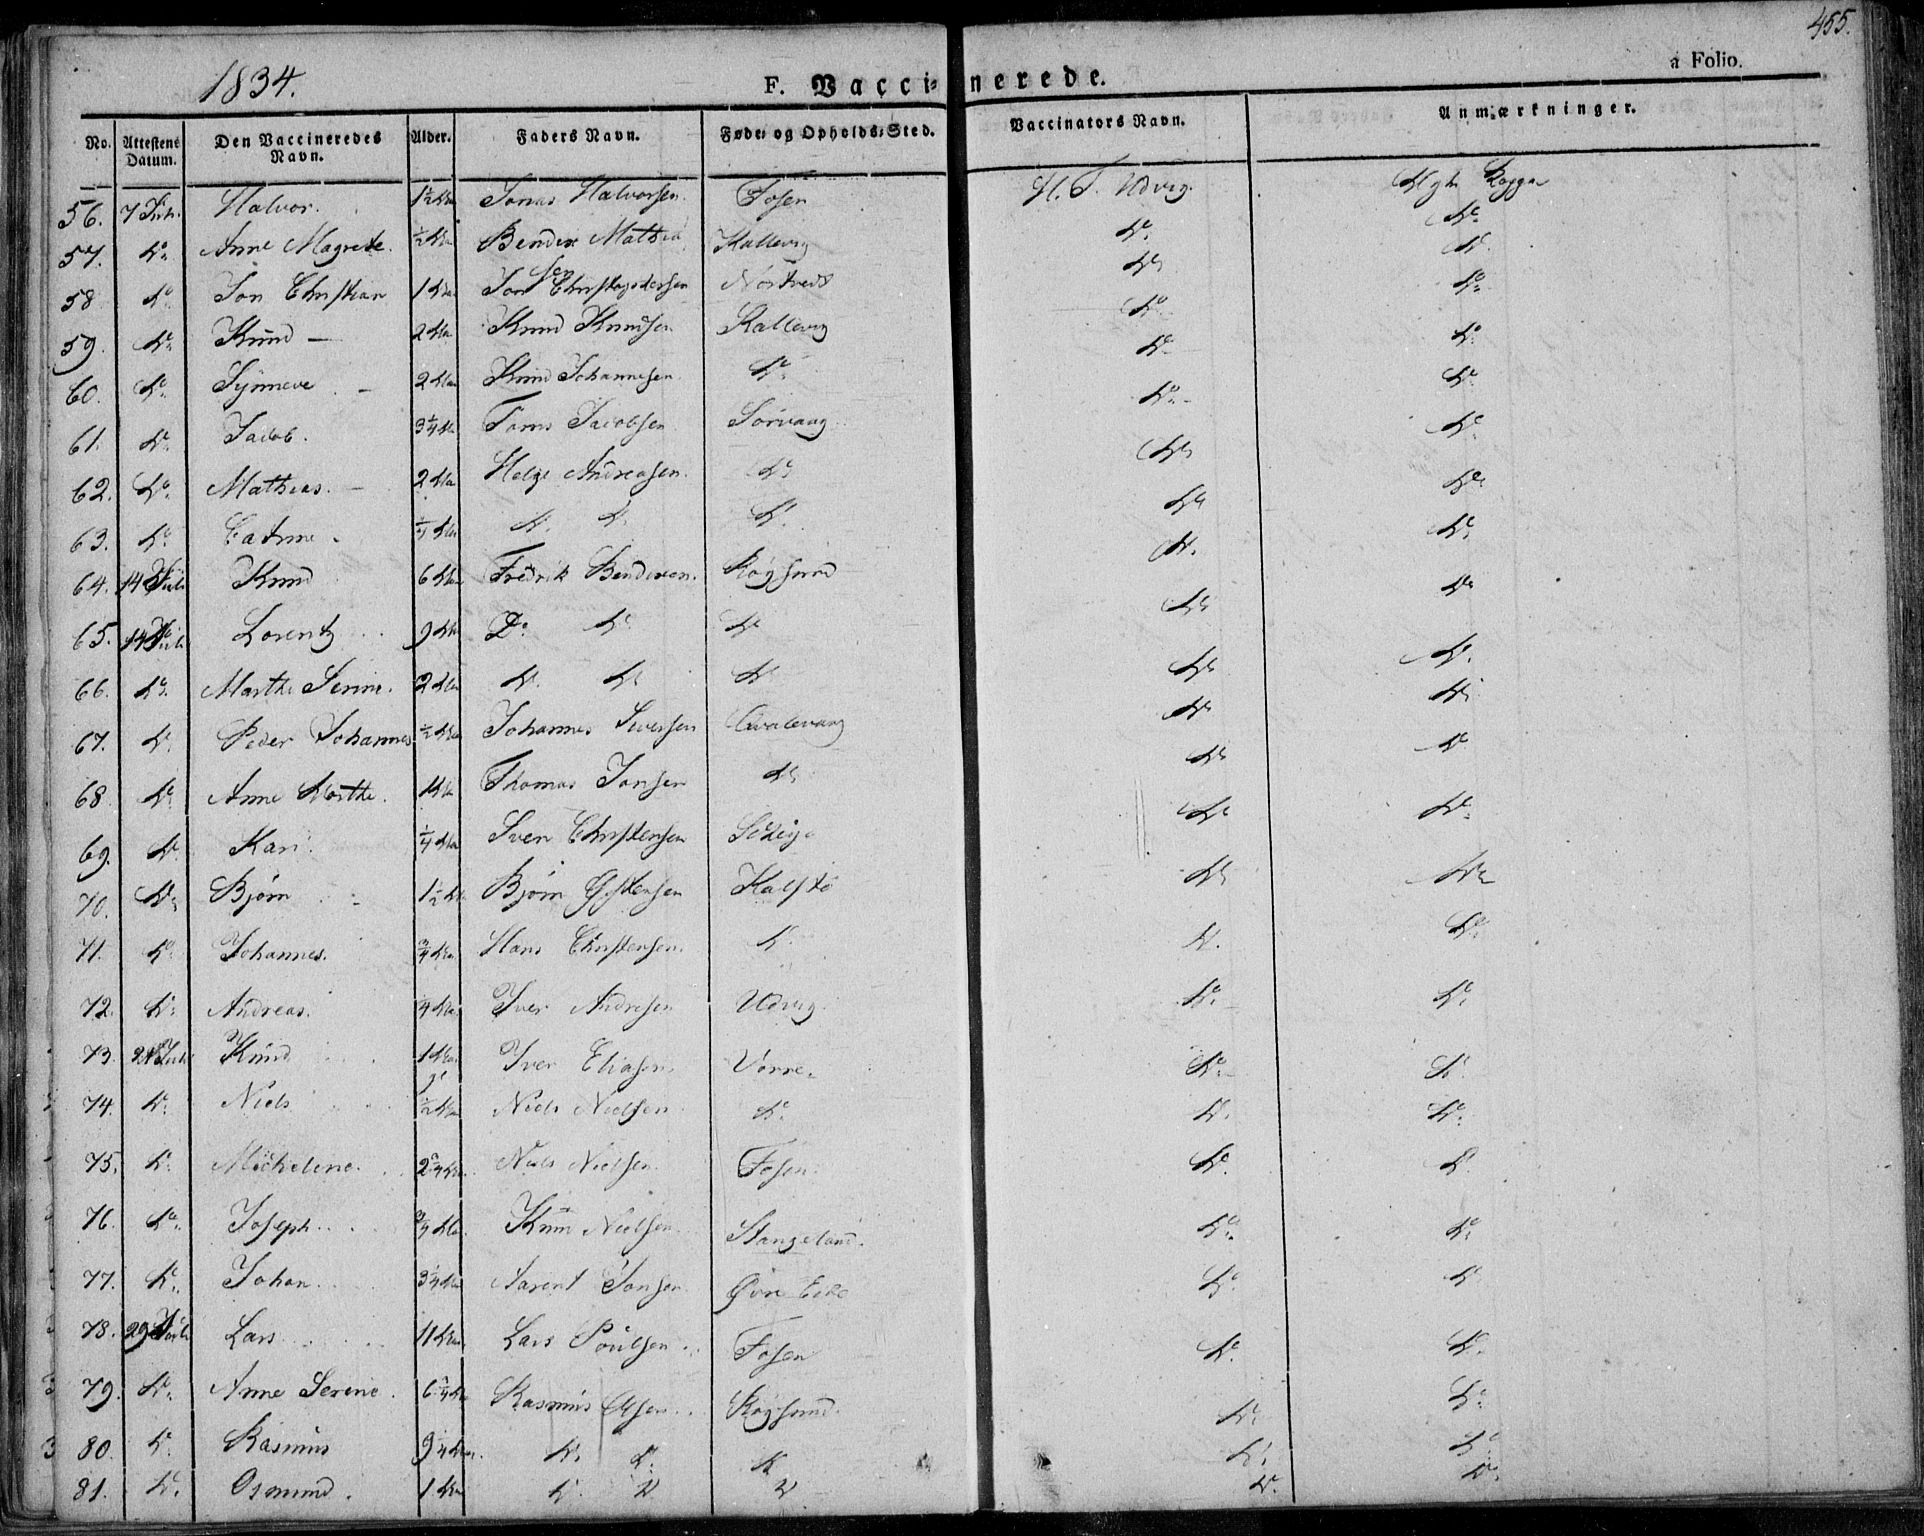 455.
1834. F. Vacci- nerede. a Folio.
No. Attestens Datum. Den Vaccineredes Navn. Alder. Faders Navn. Føde- og Opholds-Sted. Vaccinators Navn. Anmærkninger.
56. 7 Juli. Halvor. 1½ Jonas Halvorsen. Fosen H. T. Udvig.
57. Do Anne Magrete. ½ Bendix Mathia Kallevig Do Do
sen
58 Do Jon Christian 1 Jon Christophersen Nostvedt Do Do
59. Do Knud – 2 Knud Knudsen Kallevig Do Do
60. Do Synneve – 2 Knud Johannesen. Do Do Do
61. Do Jacob. 3¼ Jacobsen Sørvaag Do Do
62. Do Mathias. – 2 Helge Andreasen. Do Do Do
63. Do Do Do Do Do Do
64. 14 Juli Knud 6 Fredrik Bendixen. Røgsund Do Do
65. 14 Juli Lorentz 9 Do Do Do Do Do
66. Do Marthe Serine. 2 Do Do Do Do Do
67. Do Peder Johannes. ½ Johannes Siversen Qvalevaag Do Do
68. Do Anne Marthe. 1 Thomas Jonsen Do Do Do
69. Do Kari. ¼ Sven Christensen Do Do
70. Do Bjørn 1½ Bjørn Kalstø Do Do
71. Do Johannes. ¾ Hans Christensen. Do Do Do
72. Do Andreas. 4 Iver Andresen Udvig. Do Do
73. Juli Knud 1 Iver Eliasen Vorre. Do Do
74. Do Niels ½ Niels Nielsen Do Do Do
75. Do Micheline. 2¾ Niels Nielsen. Fosen. Do Do
76. Do Joseph. ¾ Nielsen Stangeland. Do Do
77. Do Johan. 3¼ Aarent Jonsen. Øvre Eide Do Do
78. 29 Juli Lars 11 Lars Poulsen. Fosen Do Do
79. Do Anne Serine. 6¼ Rasmus Olsen. Røgsund. Do Do
80. Do Rasmus 9¼ Do Do Do Do Do
81. Do Osmund. 1 Do Do Do Do Do